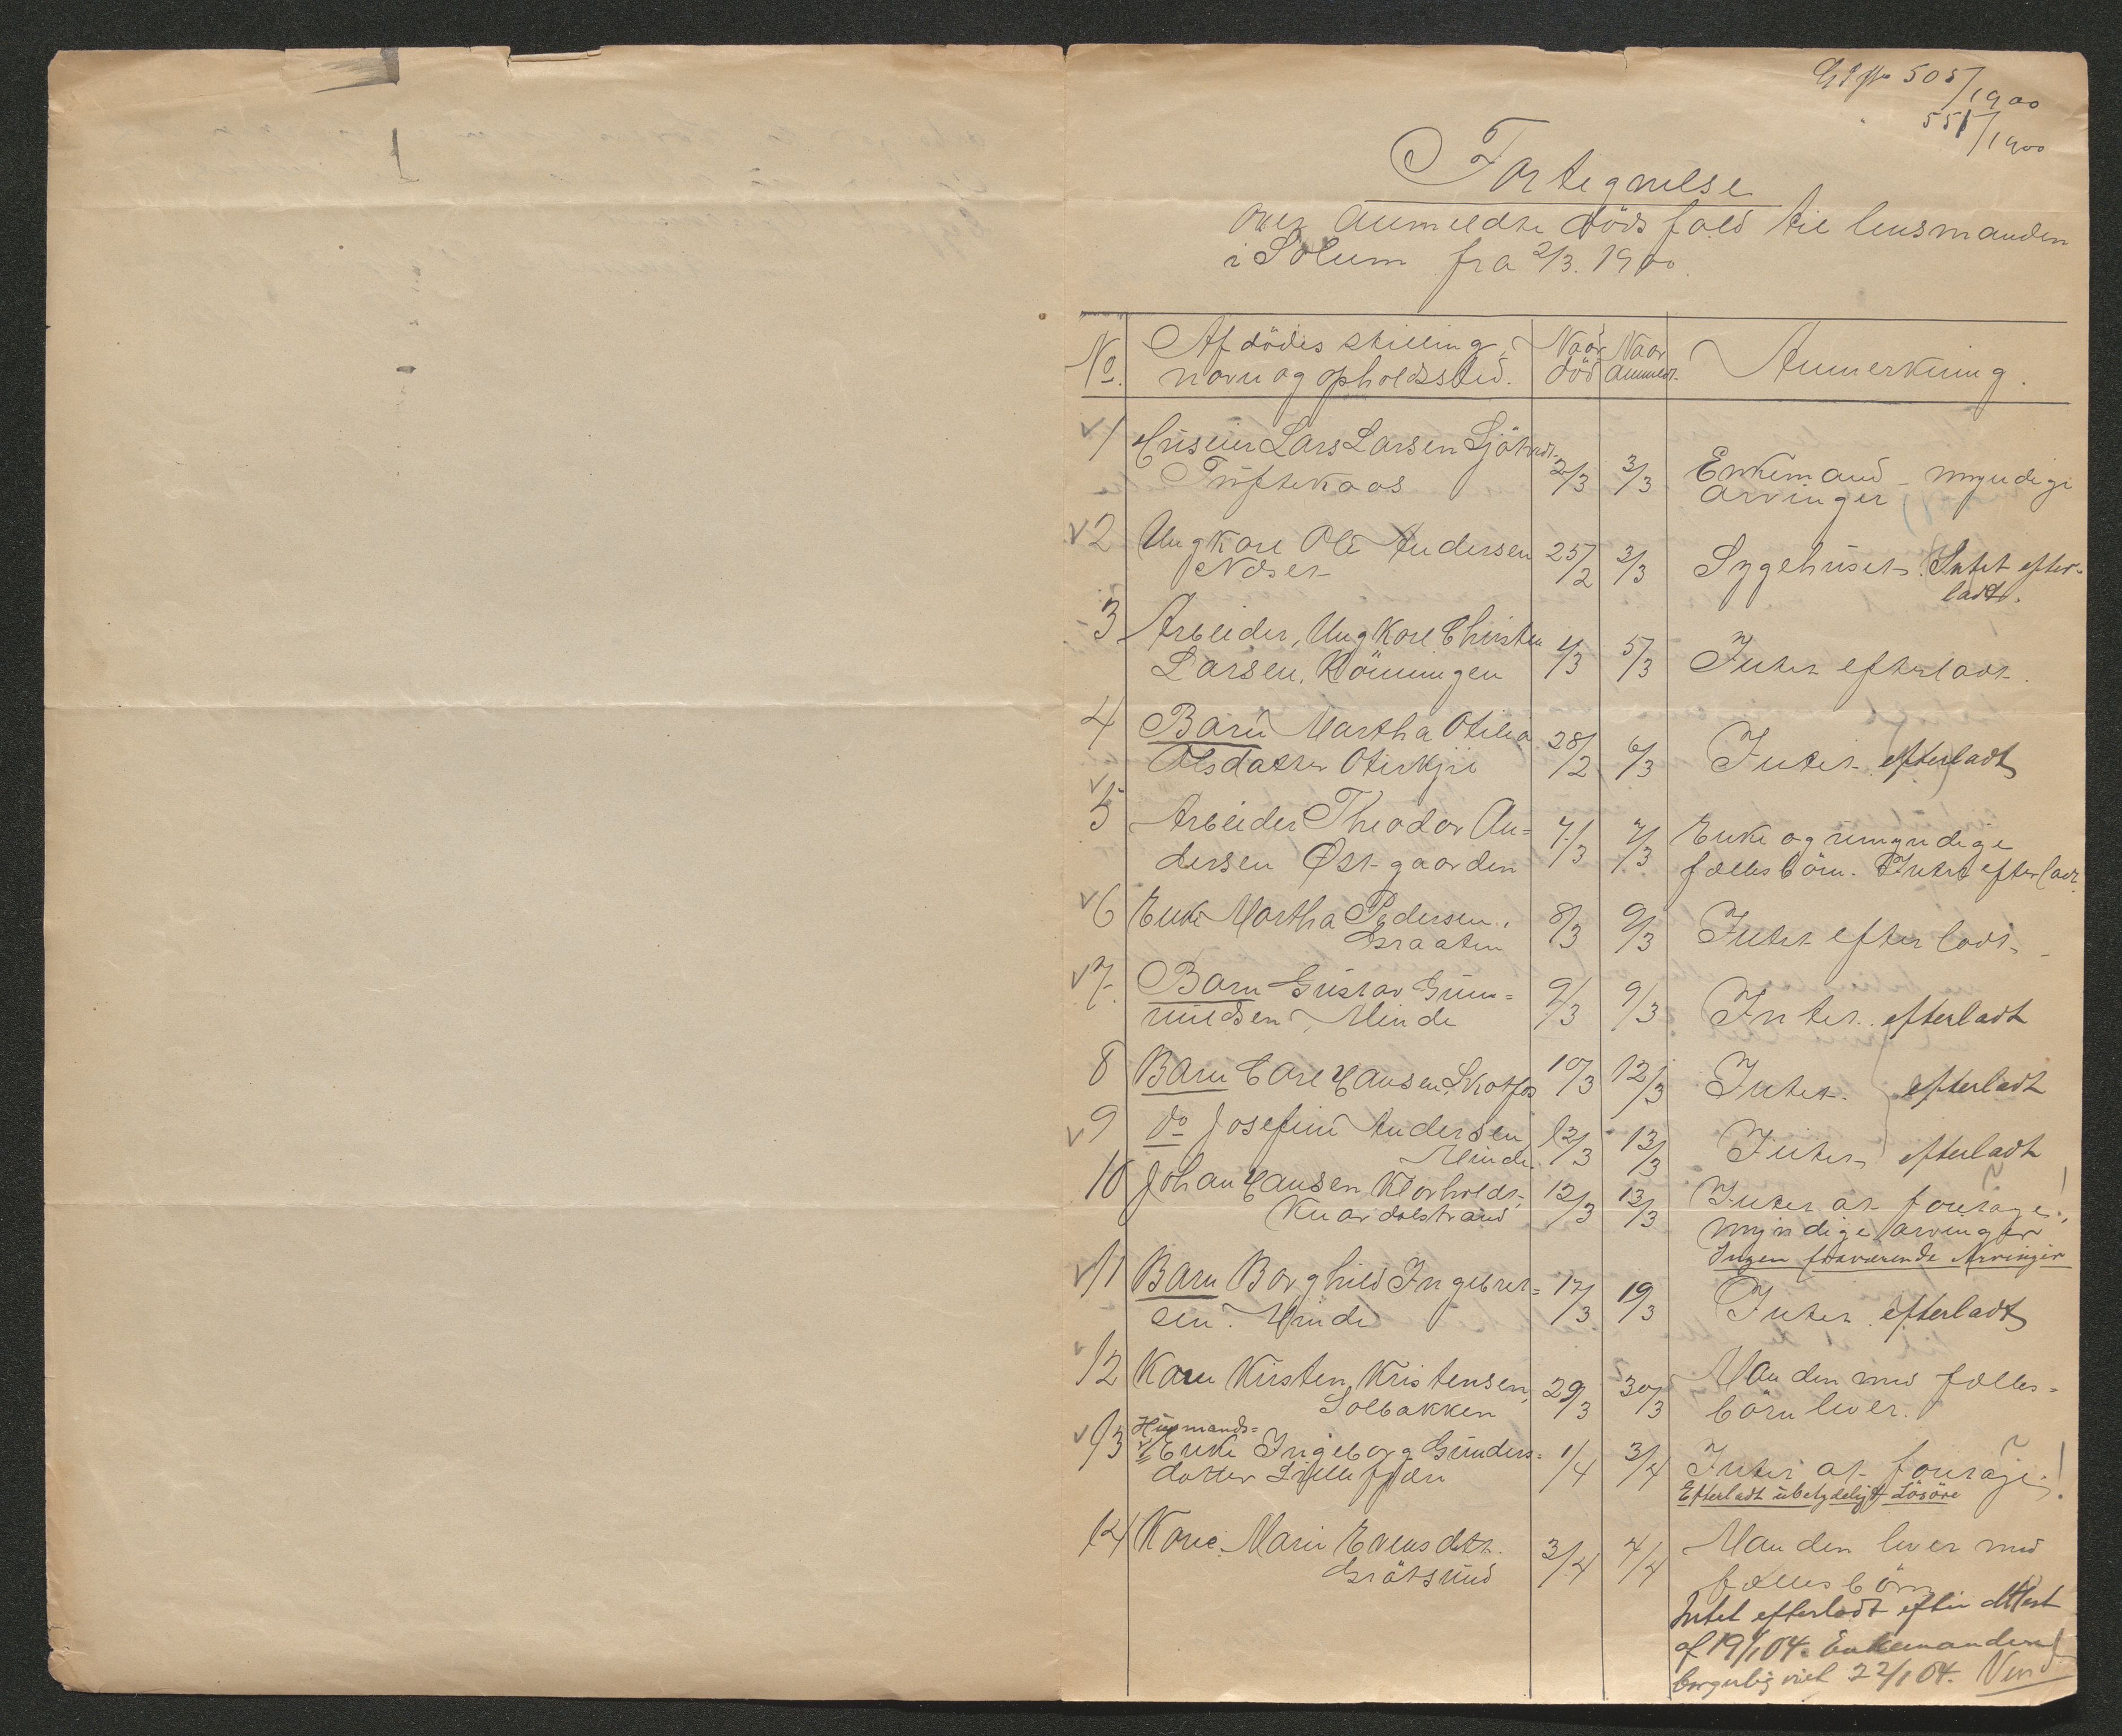 505/1900
551/1900
Fortegnelse
over anmeldte dödsfald til lensmanden
i Solum fra 2/3. 1900.
No. Afdödes stilling, navn og opholdssted. Naar död Naar anmeldt Anmerkning.
1 Huseier Lars Larsen
Tuftekaas 2/3 3/3 Enkemand - myndige
arvinger
2 Ungkarl Ole Andersen 25/2 3/3 Sygehuset. Intet efter-
Næset ladt.
3 Arbeider, Ungkarl Christen 4/3 5/3 Intet efterladt.
Larsen,
4 Barn Martha Otilia 28/2 6/3 Intet efterladt
Olsdatter
5 Arbeider Theodor An- 7/3 7/3 Enke og umyndige
dersen Østgaarden fællesbörn. Intet efterladt.
6 Enke Martha Pedersen, 8/3 9/3 Intet efterladt
Braaten
7. Barn Gustav Gun- 9/3 9/3 Intet efterladt
nuldsen, Minde
8 Barn Carl Hansen, Skotfos 10/3 12/3 Intet. efterladt
9 do Josefine Andersen 12/3 13/3 Intet efterladt
Minde.
10 Johan Hansen Klovholdt, 12/3 13/3 Intet at foretage.!
Knardalstrand myndige arvinger
Ingen fraværende Arvinger
11 Barn Borghild Ingebret- 17/3 19/3 Intet efterladt
sen. Minde
12 Karen Kirsten Kristensen, 29/3 30/3 Manden med fælles-
Solbakken börn lever.
13 Husmands-
Enke Ingeborg Gunders- 1/4 3/4 Intet at foretage.!
datter Efterladt ubetydeligt Lösöre
14 Kone Maren Evensdtr. 3/4 4/4 Manden lever med
Gråtsund fællesbörn
Intet efterladt efter Attest
af 19/1 04. Enkemanden
borgerlig viet 22/1 04. Vend